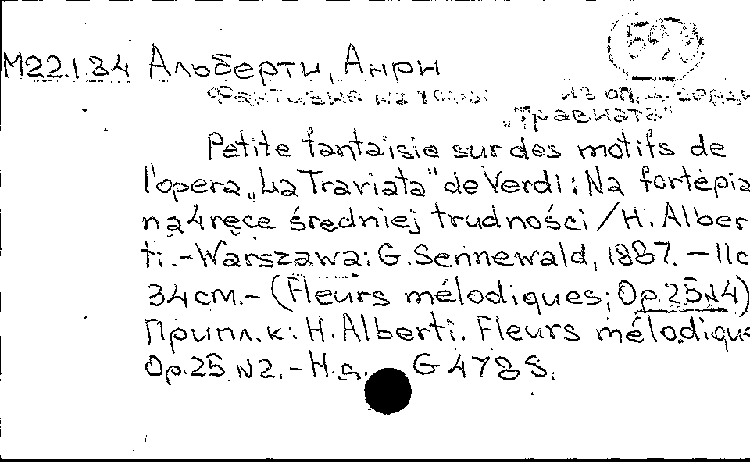 М22.1.34 Альберти, Анри
Фантазия на темы из оп. Д. Верди
„Травиата"
Petite fantaisie sur des motifs de
l'opera „La Traviata" de Verdi: Na fortepia
na 4 ręce średniej trudności / H. Alber
ti. - Warszawa: G. Sennewald, 1887. - 11c
34см. - (Fleurs mélodiques; Op.25 N4)
Припл. к: H. Alberti. Fleurs mélodique
Op.25 N2. - Н.д. G 4788.